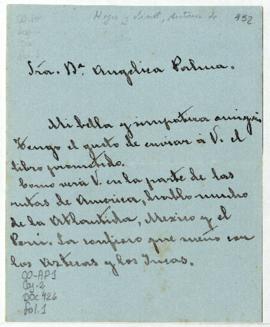 Hoyos y Vinent, Antonio de
452
Sra. Dª Angelica Palma.
Mi bella y simpatica amiga:
Tengo el gusto de enviar á V. el
libro prometido.
Como verá V. en la parte de las
rutas de America, hablo mucho
de la Atlantida, Mexico y el
Perú. La confieso que sueño con
los Aztecas y los Incas.
CO-AP1
Cy-2
Doc 426
fol. 1